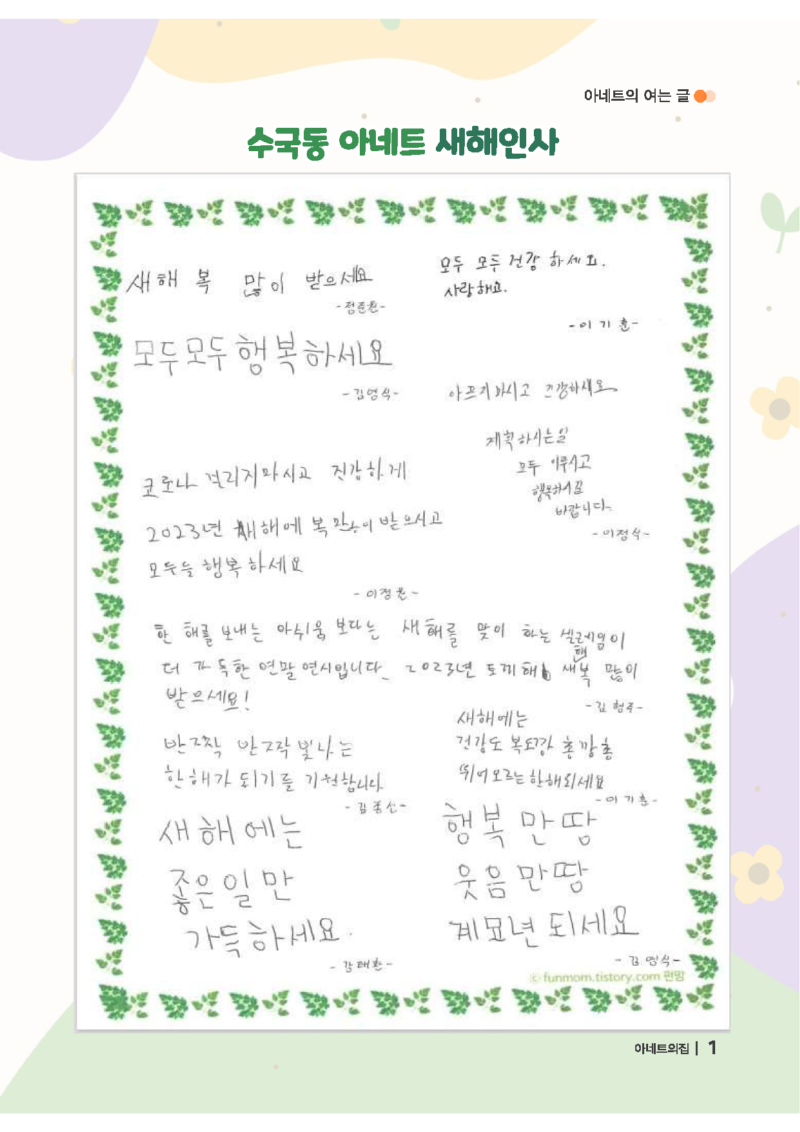 아네트의 여는 글
수국동 아네트 새해인사
새해 복 많이 받으세요
-정준원-
모두 모두 건강 하세요.
사랑해요.
-이기훈-
모두모두 행복하세요
-김영식-
아프지마시고 건강하세요
계획하시는일
모두 이루시고
행복하시길
바랍니다.
-이정식-
코로나 걸리지마시고 건강하게
2023년 새해에 복 많이 받으시고
모두들 행복하세요
-이정훈-
한 해를 보내는 아쉬움 보다는 새해를 맞이 하는 설레임이
더 가득한 연말연시입니다. 2023년 토끼해 새해복 많이
받으세요!
-김형주-
반짝 반짝 빛나는
한해가 되기를 기원합니다.
-김종신-
새해에는
건강도 복도 깡충깡충
뛰어오르는 한해되세요
-이기훈-
새해에는
좋은일만
가득하세요.
행복만땅
웃음만땅
계묘년 되세요
-김영식-
© funmom.tistory.com 펀맘
아네트의집 | 1